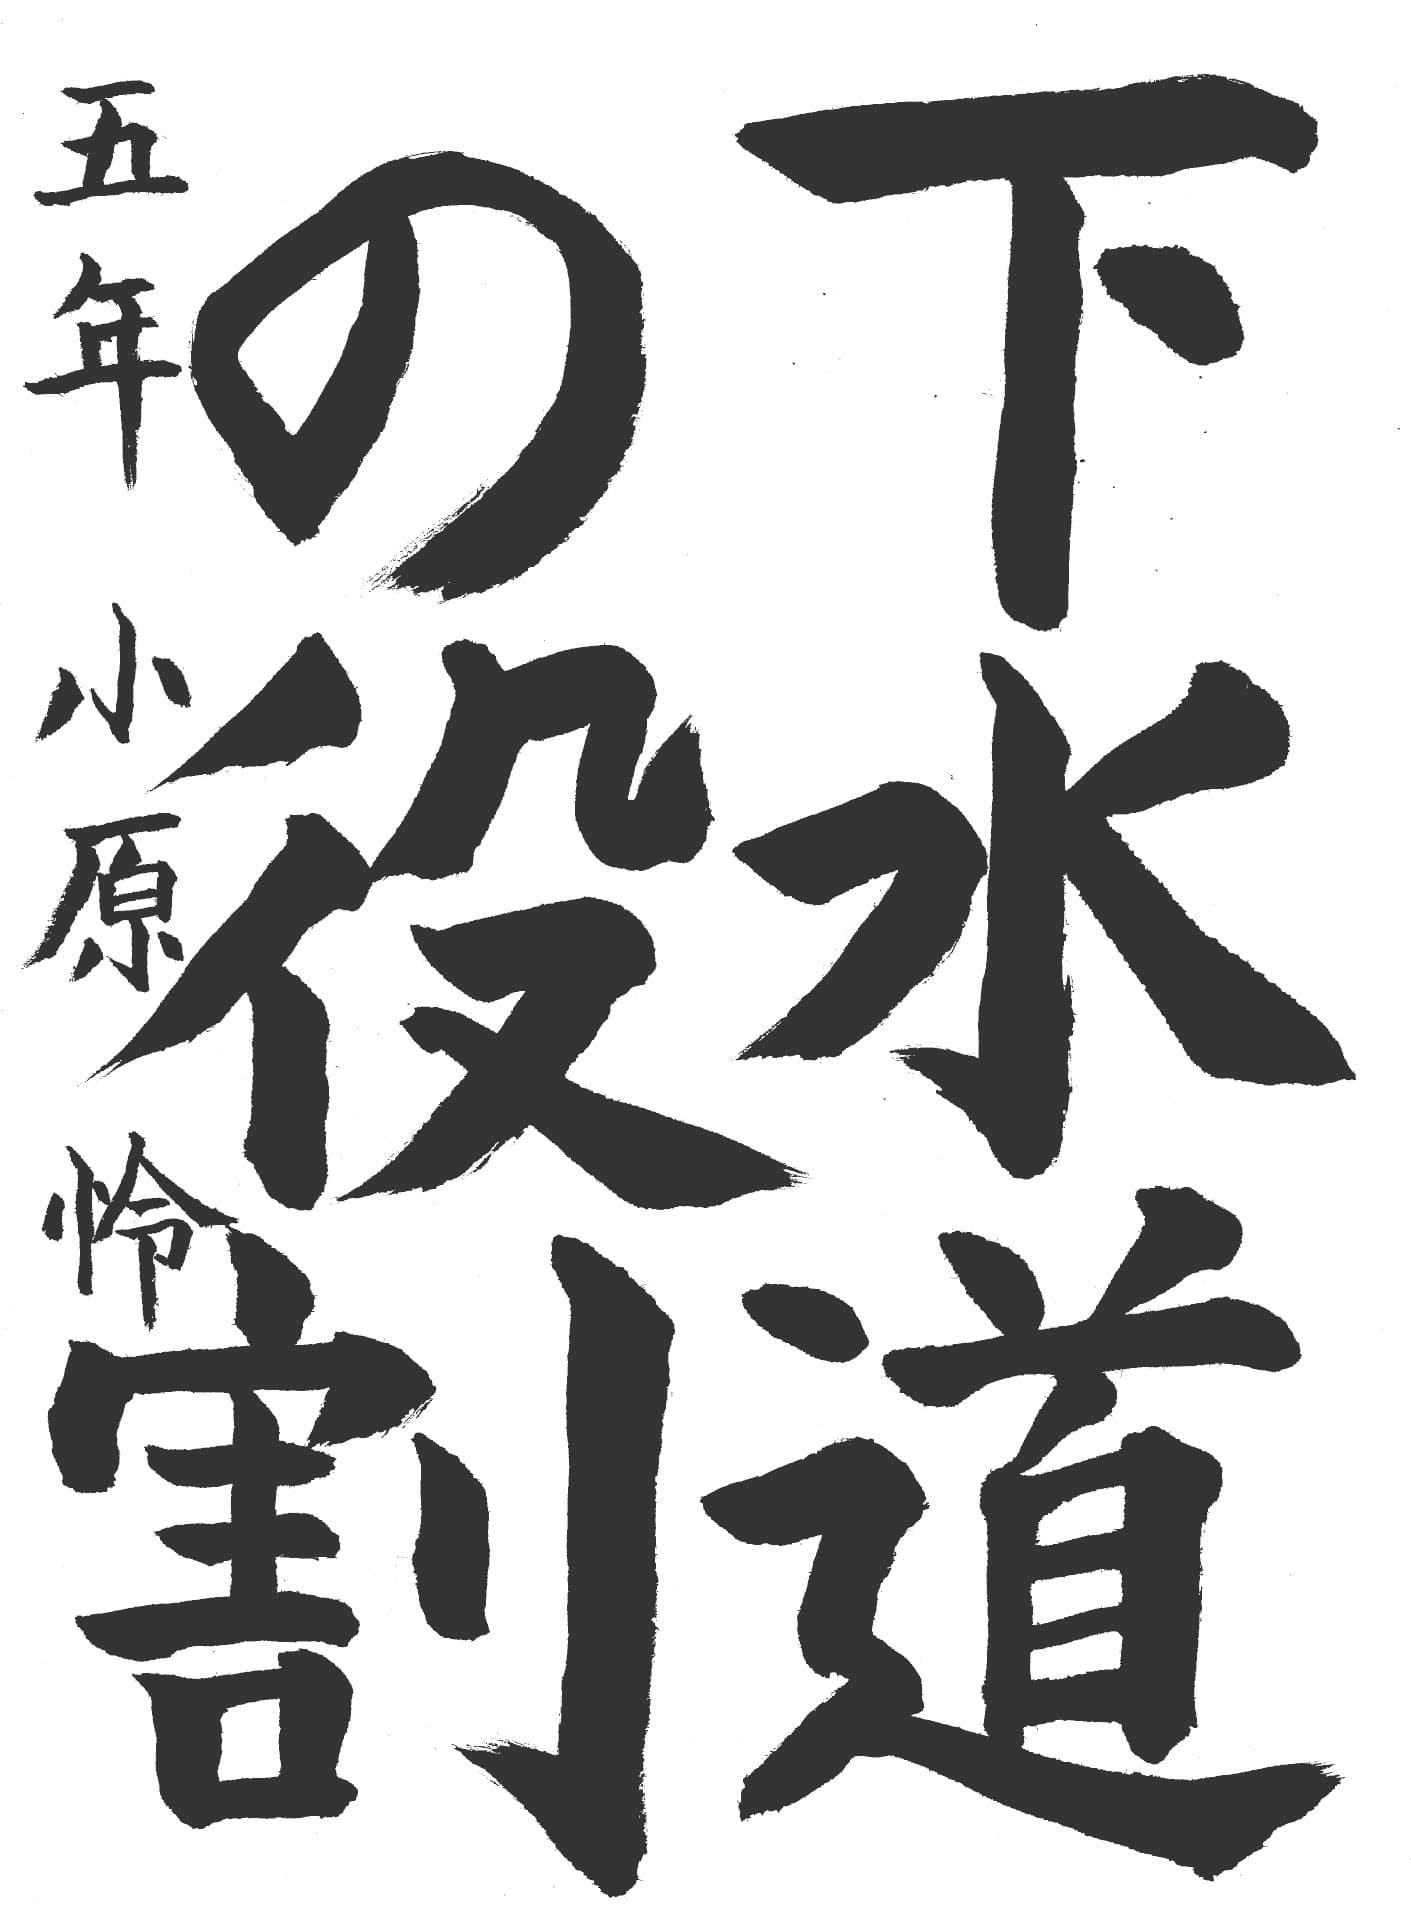 下水道
の役割
五年 小原 怜